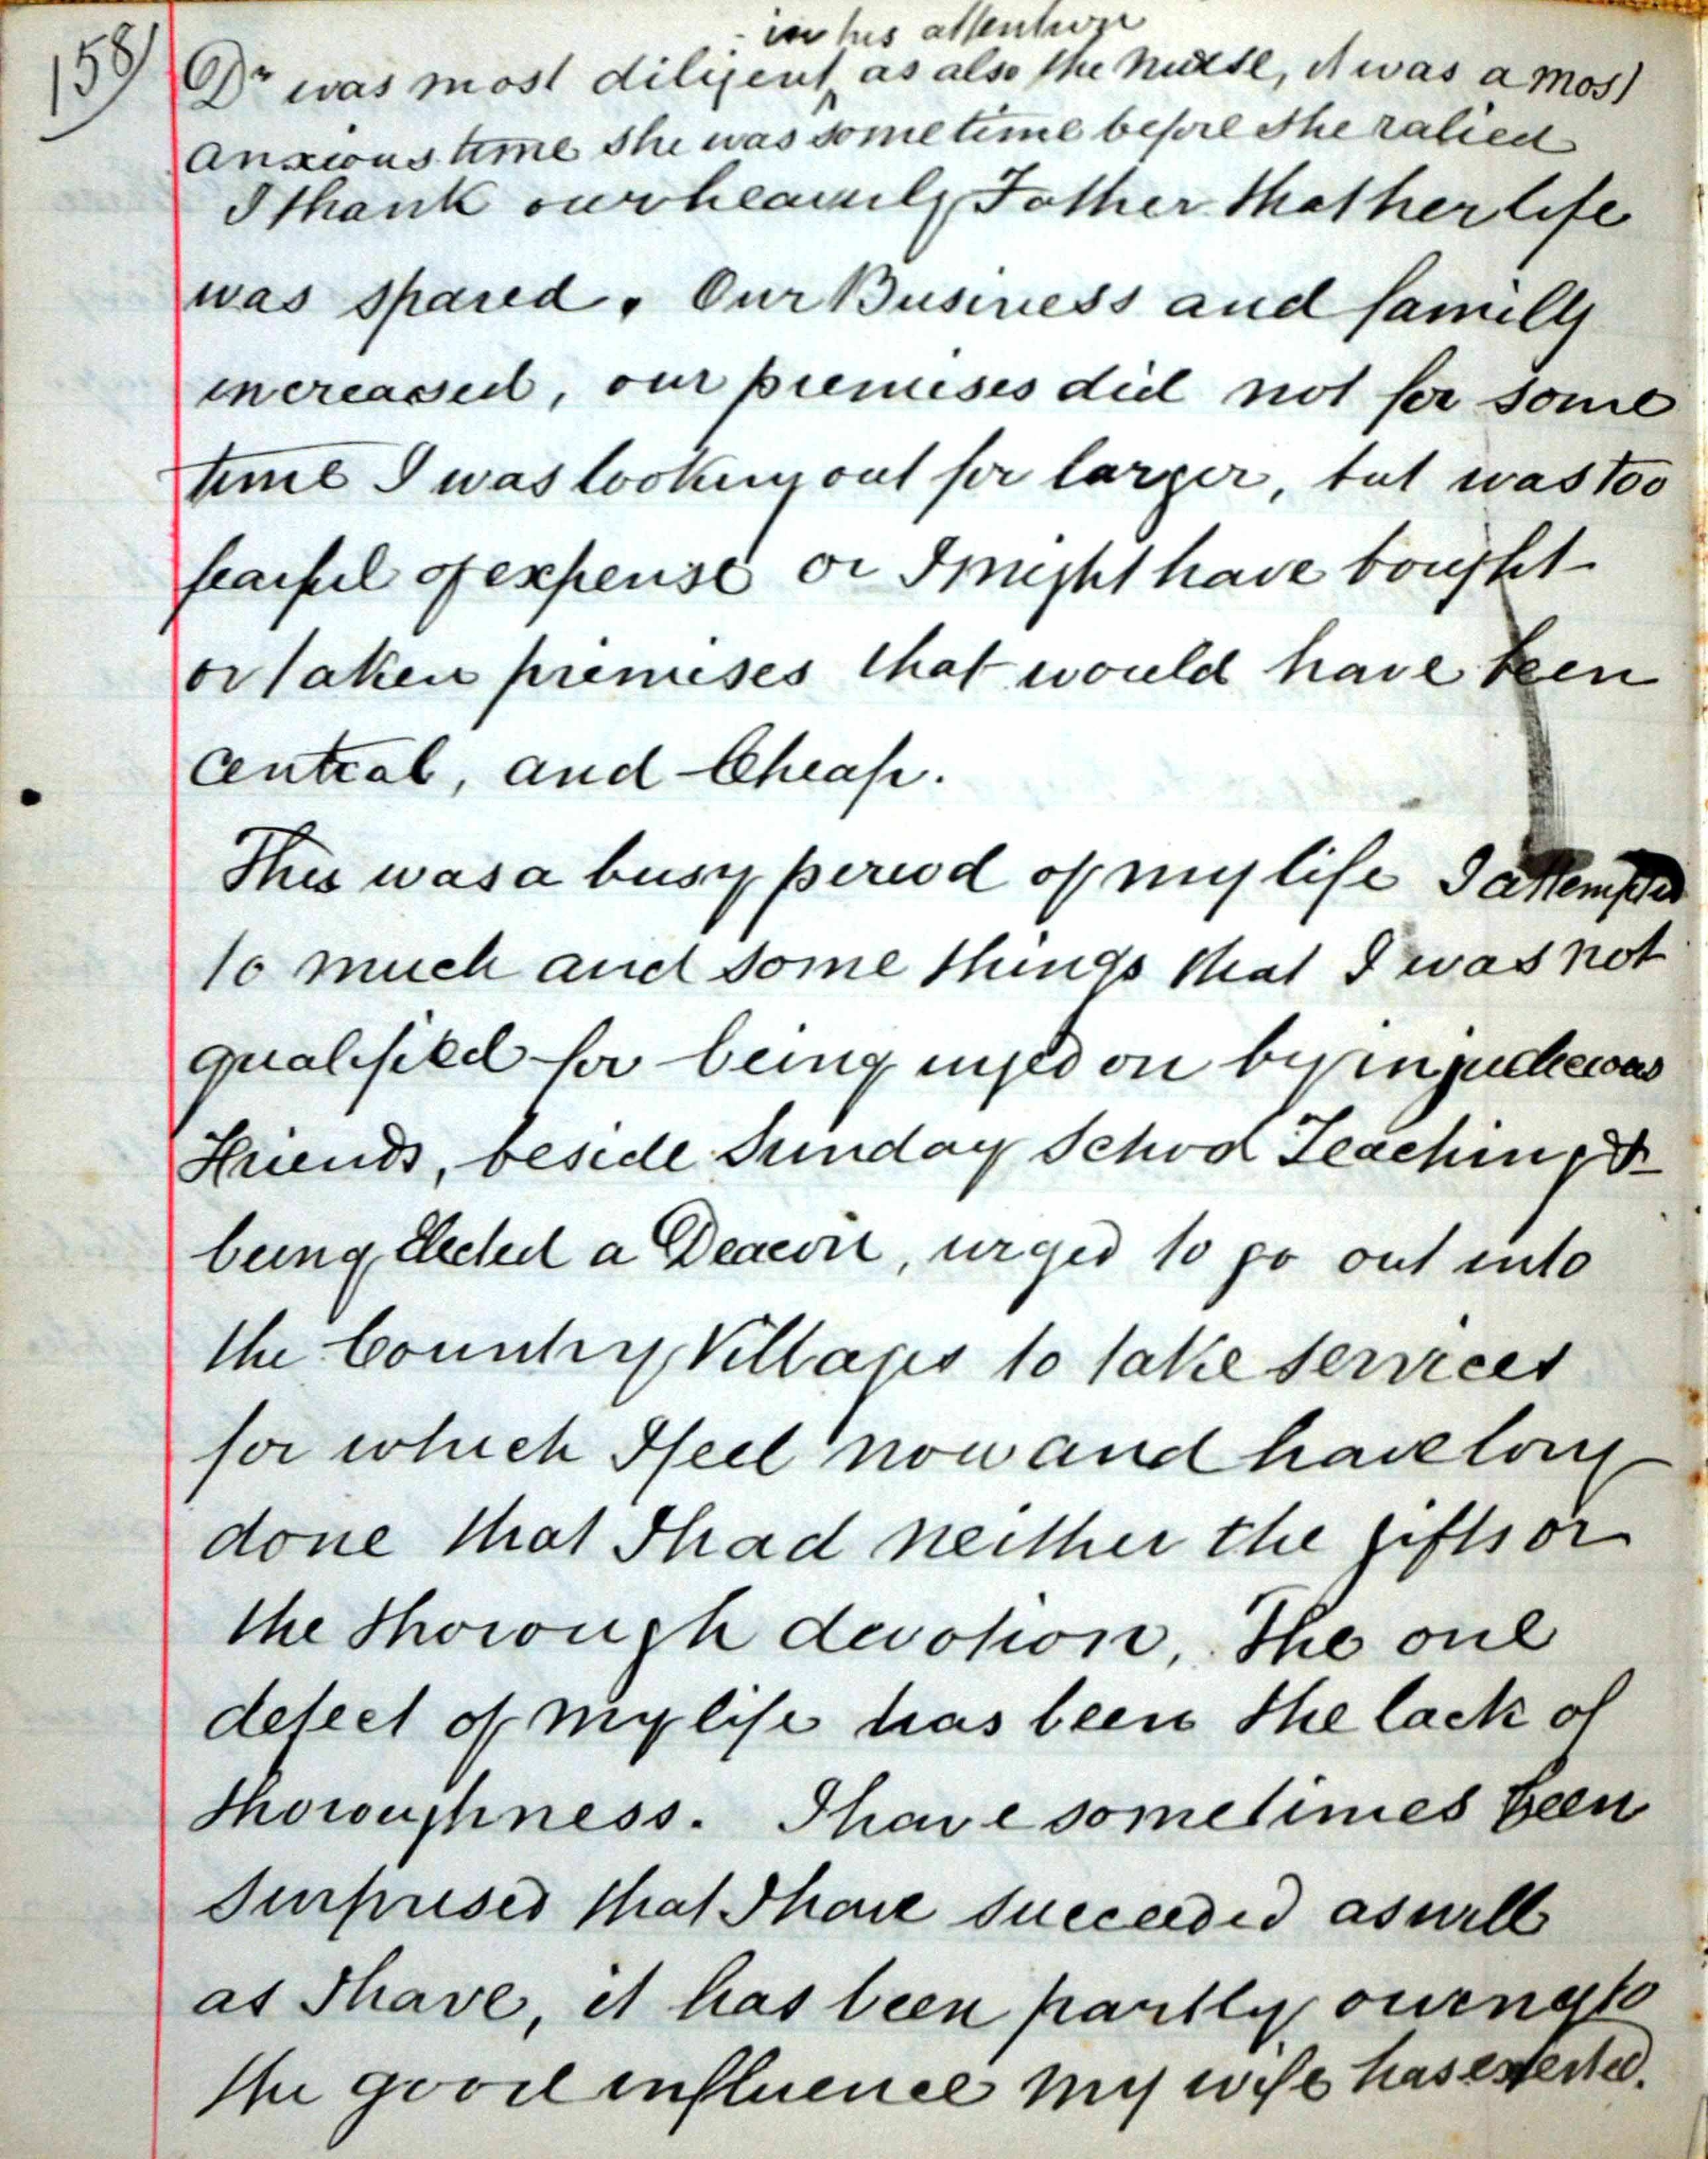 158
in his attention
Dr was most diligent, as also the nurse, it was a most
anxious time she was sometime before she ralied
I thank our heavenly Father that her life
was spared. Our Business and familly
increased, our premises did not for some
time I was looking out for larger, but was too
fearful of expense or I might have bought
or taken premises that would have been
central, and Cheap.
This was a busy period of my life I attempted
to much and some things that I was not
qualified for being urged on by injudicious
Friends, beside Sunday School Teaching &
being Elected a Deacon, urged to go out into
the Country Villages to take services
for which I feel now and have long
done that I had neither the gifts or
the thorough devotion, The one
defect of my life has been the lack of
thoroughness. I have sometimes been
surprised that I have succeeded as well
as I have, it has been partly owing to
the good influence my wife has exerted.